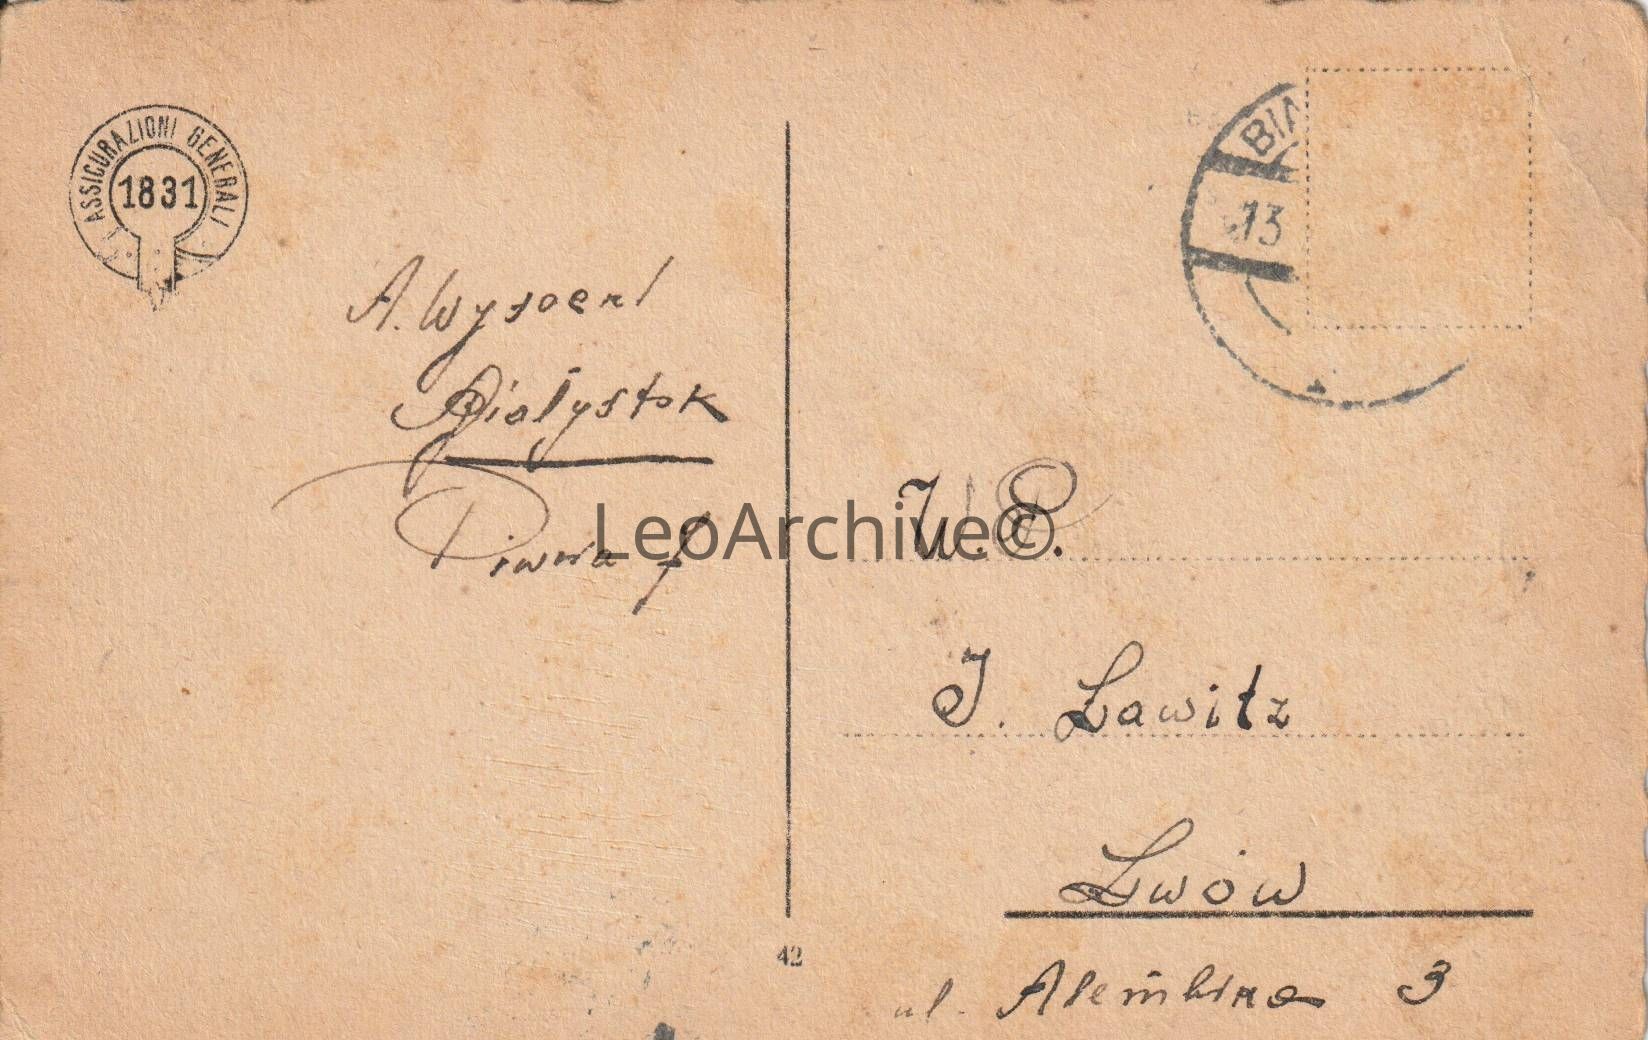 ASSICURAZIONI GENERALI
1831
BIA
13
A. Wysocki
Białystok
Piwna 7
LeoArchive©
W.P.
J. Lawitz
Lwów
42
ul. 3